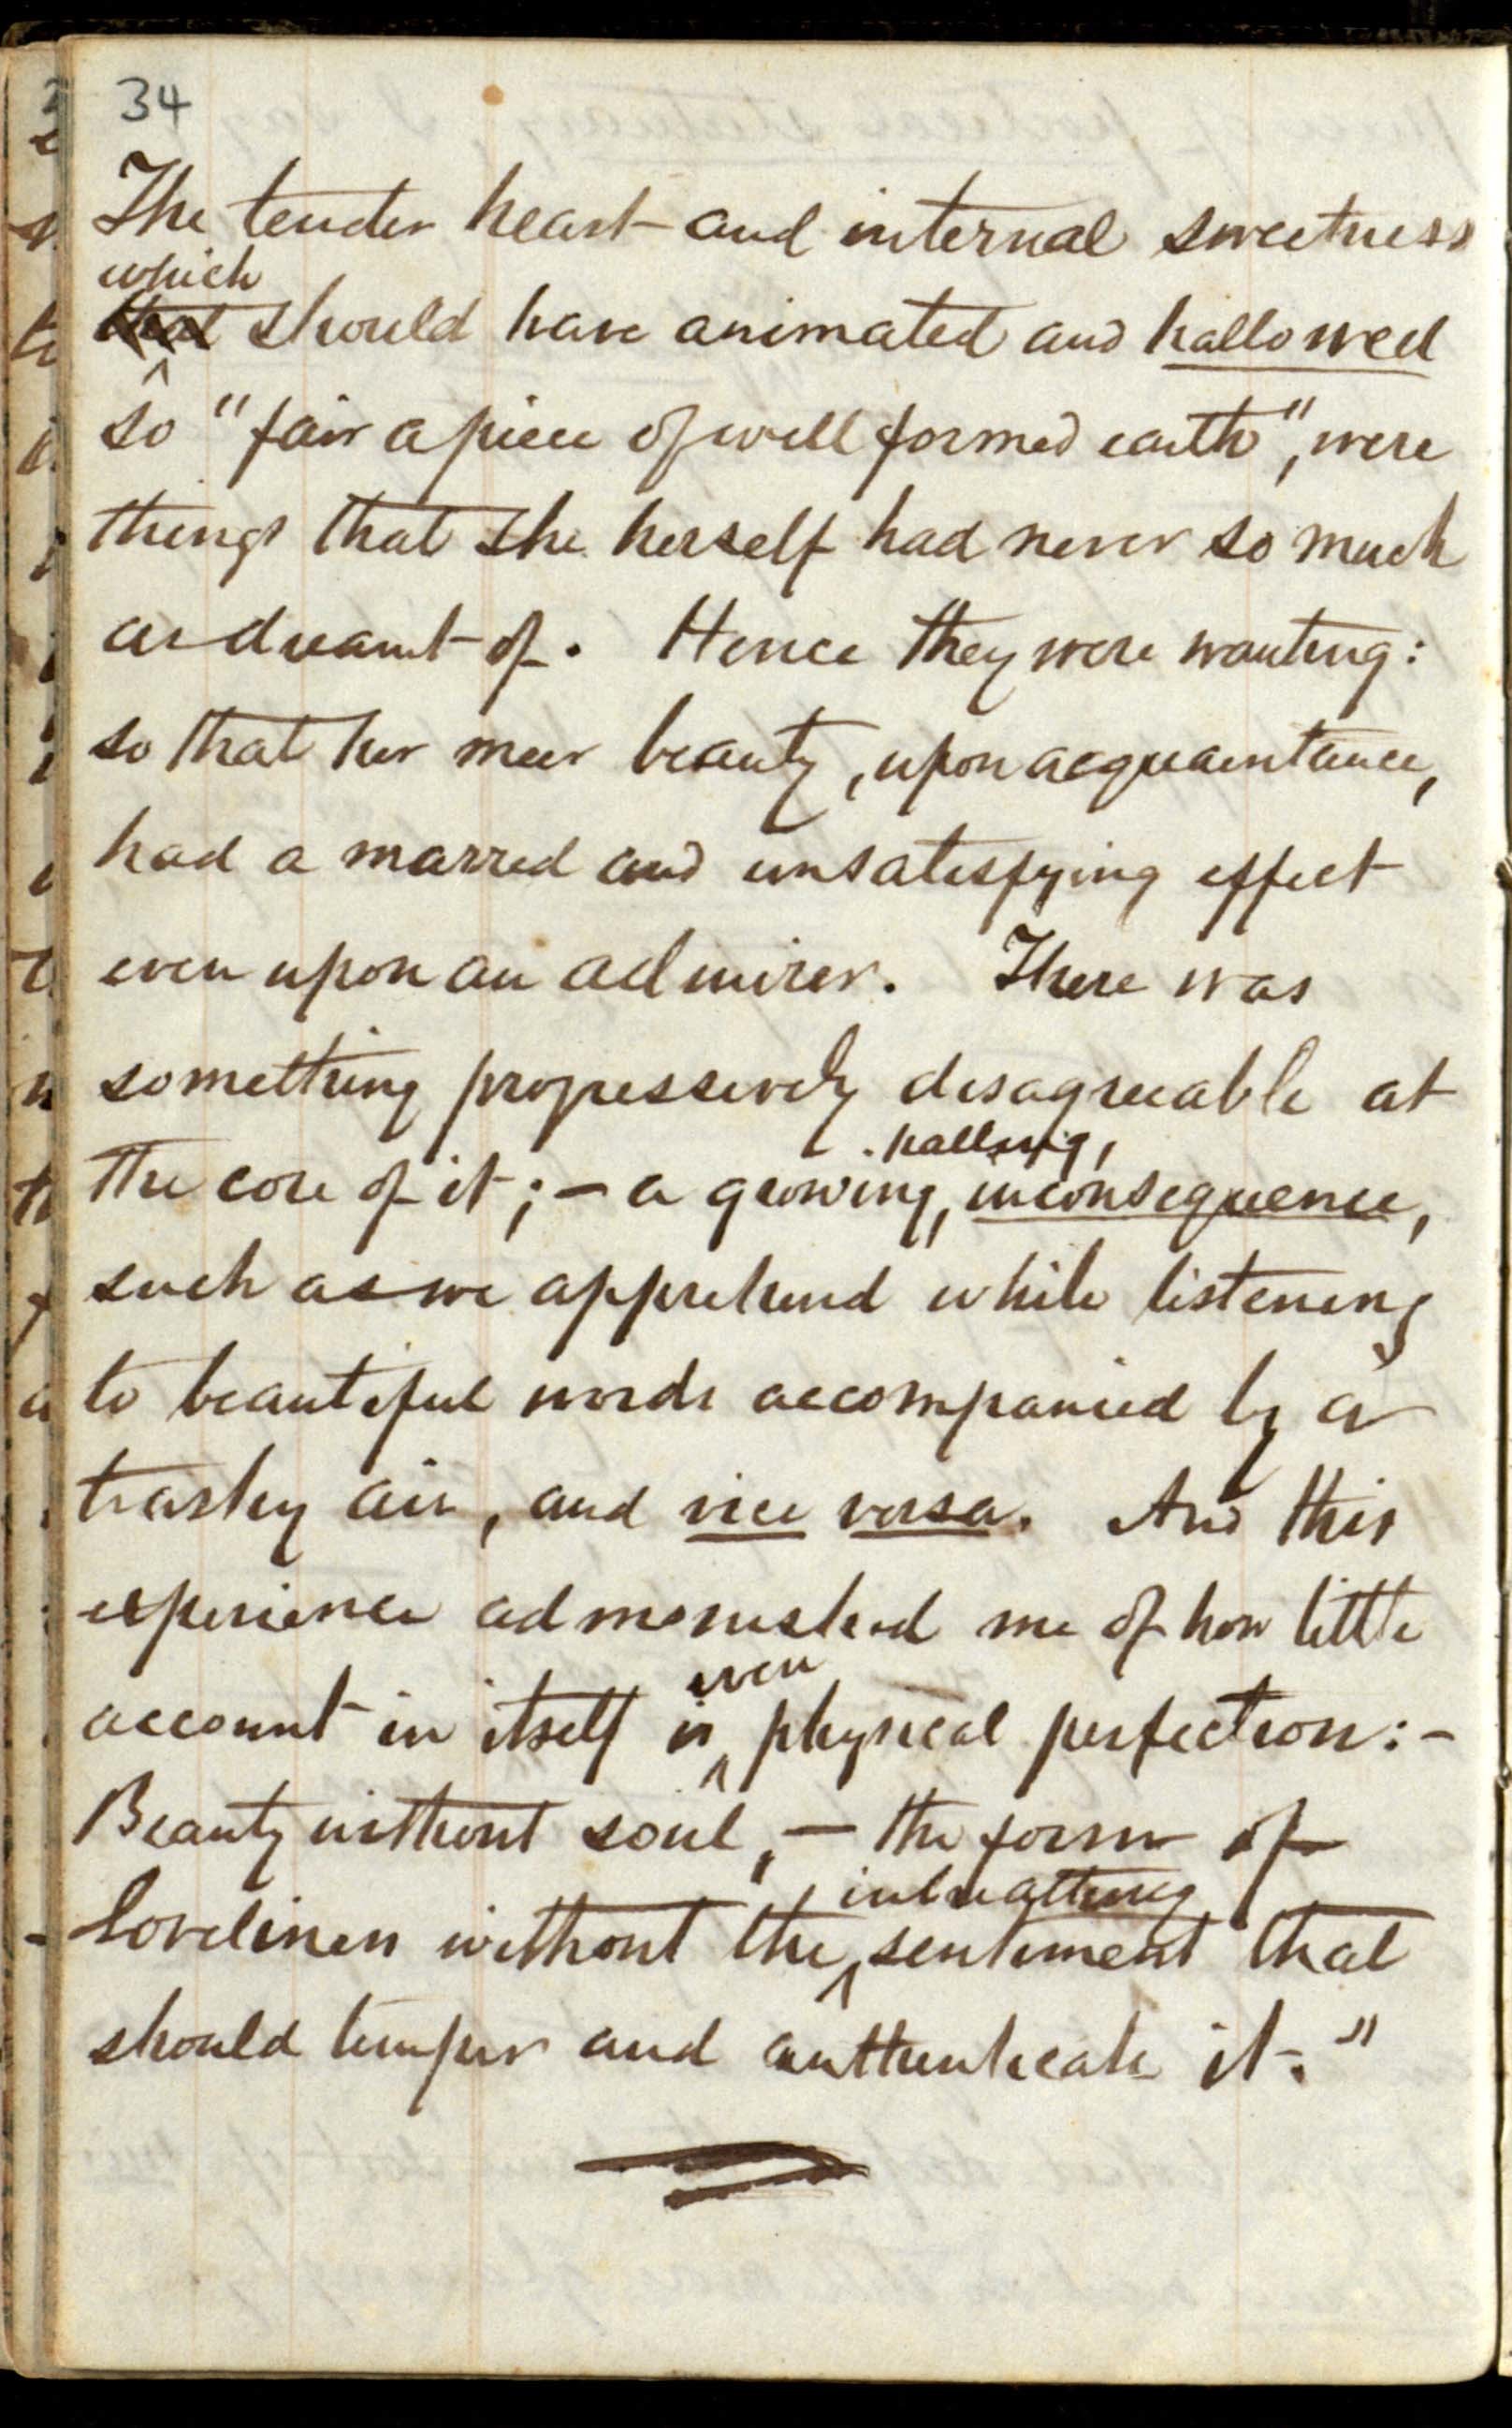 34
The tender heart and internal sweetness
which
that should have animated and hallowed
so "fair a piece of well formed earth", were
things that she herself had never so much
as dreamt of. Hence they were wanting:
so that her meer beauty, upon acquaintance,
had a marred and unsatisfying effect
even upon an admirer. There was
something progressively disagreeable at
the core of it; — a growing, inconsequence,
such as we apprehend while listening
to beautiful words accompanied by a
trashy air, and vice versa. And this
experience admonished me of how little
even
account in itself is physical perfection: —
Beauty without soul, — the form of
inbreathing
loveliness without the sentiment that
should temper and authenticate it."